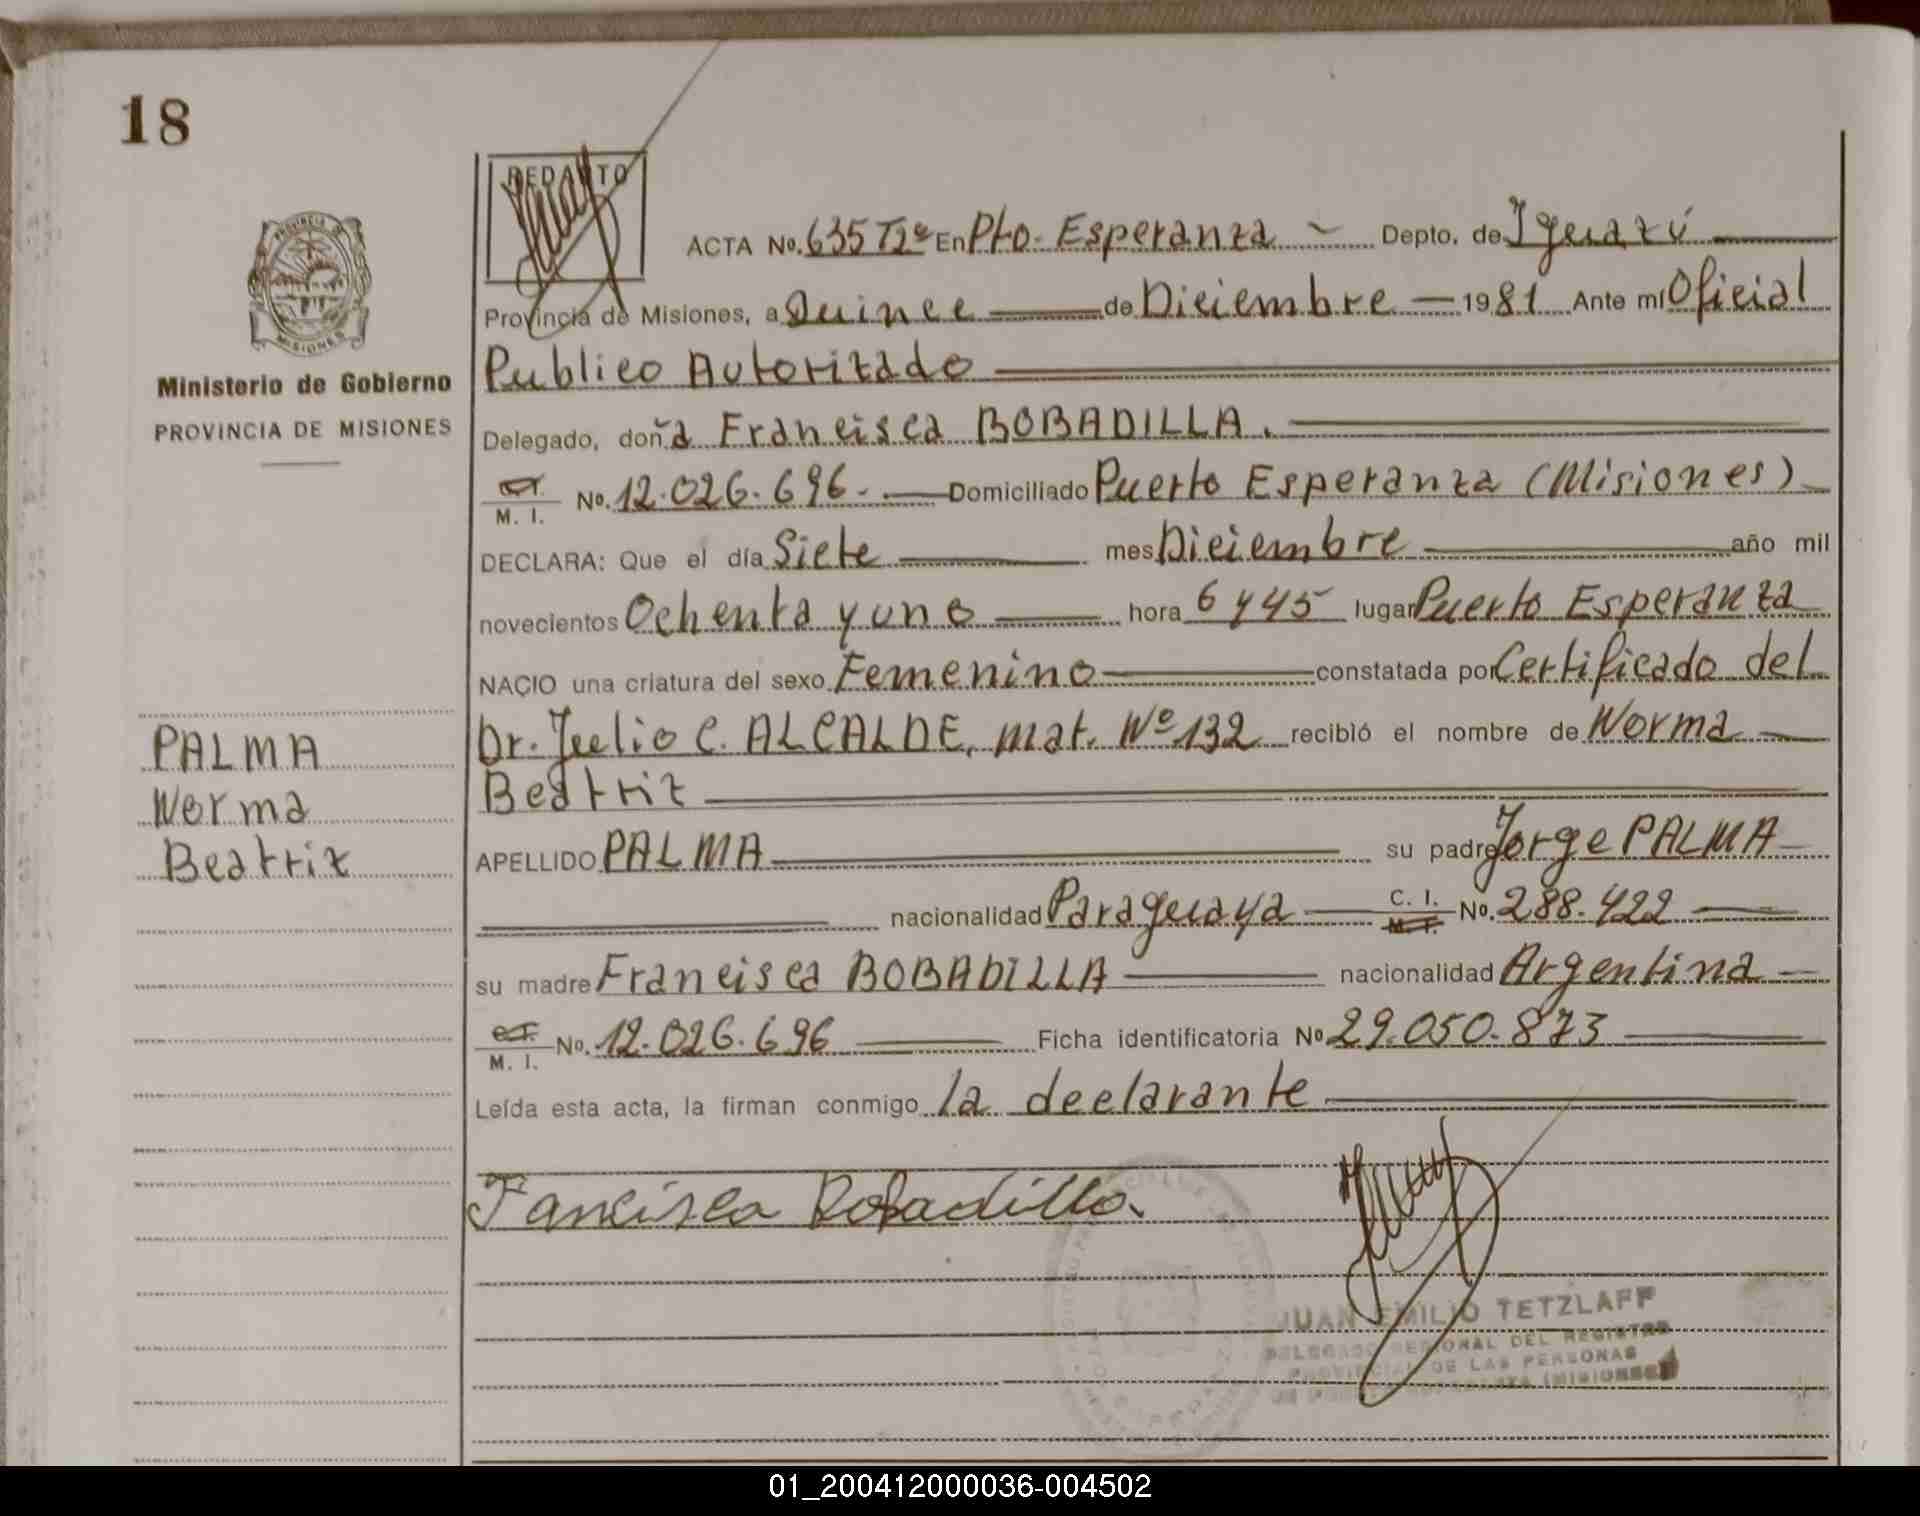 18
REDACTO
ACTA No. 635 T2º En Pto. Esperanza Depto. de Iguazú
Provincia de Misiones, a Quince de Diciembre 1981 Ante mí Oficial
Publico Autorizado
Ministerio de Gobierno
PROVINCIA DE MISIONES
Delegado, doña Francisca BOBADILLA.
C.I. M. I. No. 12.026.696. Domiciliado Puerto Esperanza (Misiones)
DECLARA: Que el día Siete mes Diciembre año mil
novecientos Ochenta y uno hora 6 y 45 lugar Puerto Esperanza
NACIO una criatura del sexo Femenino constatada por Certificado del
Dr. Julio C. ALCALDE, mat. Nº 132 recibió el nombre de Norma
Beatriz
PALMA
Norma
Beatriz
APELLIDO PALMA su padre Jorge PALMA
nacionalidad Paraguaya C. I. M. I. No. 288.422
su madre Francisca BOBADILLA nacionalidad Argentina
C.I. M. I. No. 12.026.696 Ficha identificatoria No 29.050.873
Leída esta acta, la firman conmigo la declarante
Francisca Bobadilla.
JUAN EMILIO TETZLAFF
DELEGADO REGIONAL DEL REGISTRO
PROVINCIAL DE LAS PERSONAS
(MISIONES)
01_200412000036-004502